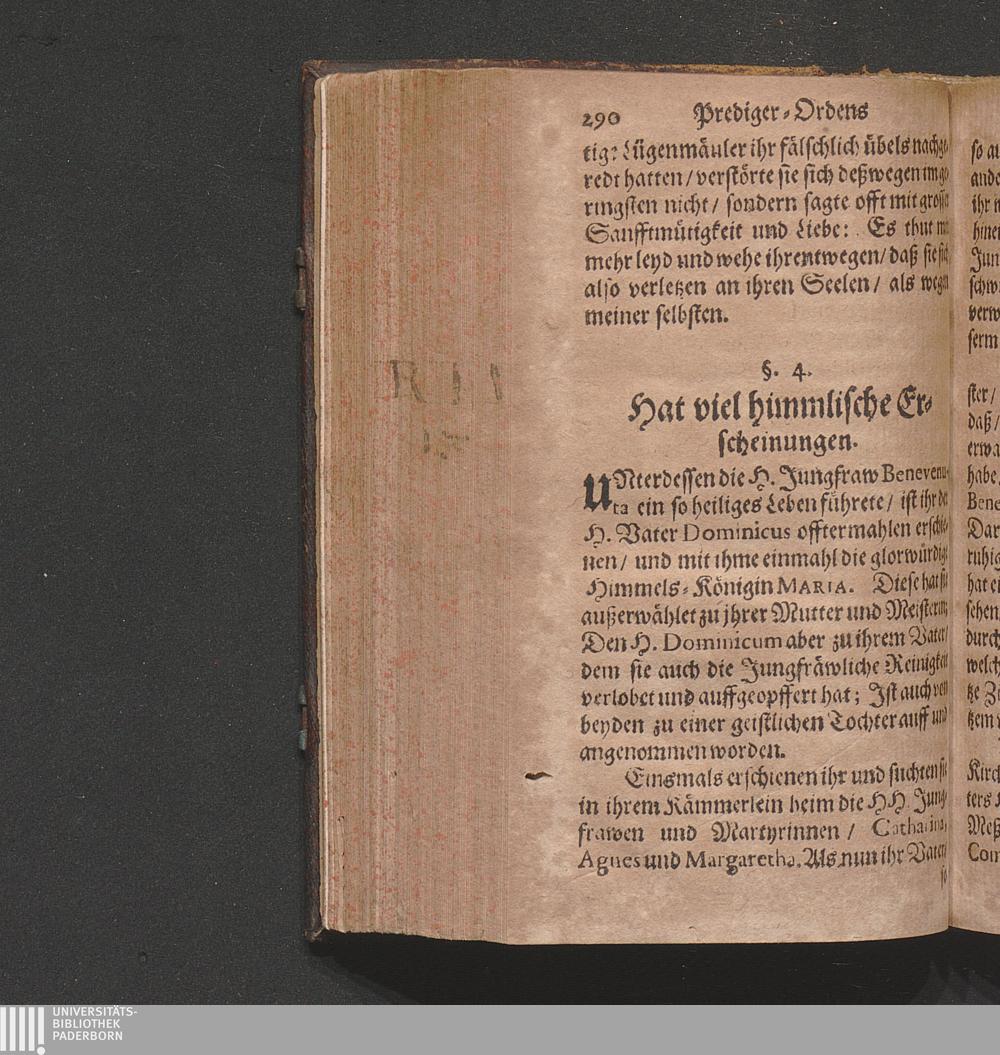 290 Prediger-Ordens
tige Lügenmäuler ihr fälschlich übels nachge-
redt hatten/ verstörte sie sich deßwegen im ge-
ringsten nicht/ sondern sagte offt mit grosser
Sanfftmütigkeit und Liebe: Es thut mir
mehr leyd und wehe ihrentwegen/ daß sie sich
also verletzen an ihren Seelen/ als wegen
meiner selbsten.
§. 4.
Hat viel himmlische Er-
scheinungen.
UNterdessen die H. Jungfraw Benevenu-
ta ein so heiliges Leben führete/ ist ihr der
H. Vater Dominicus offtermahlen erschie-
nen/ und mit ihme einmahl die glorwürdige
Himmels-Königin MARIA. Diese hat sie
außerwählet zu jhrer Mutter und Meisterin;
Den H. Dominicum aber zu ihrem Vater/
dem sie auch die Jungfräwliche Reinigkeit
verlobet und auffgeopffert hat; Ist auch von
beyden zu einer geistlichen Tochter auff und
angenommen worden.
Einsmals erschienen ihr und suchten sie
in ihrem Kämmerlein heim die HH. Jung-
frawen und Martyrinnen/ Catharina,
Agnes und Margaretha. Als nun ihr Vater/
so
so
ihr
Jun
schw
verw
serm
ster/
daß/
erwa
habe
Bene
Dar
ruhig
hat
sehen
durch
welch
tze
tzem
Kirch
ters
Meß
Com
UNIVERSITÄTS-
BIBLIOTHEK
PADERBORN